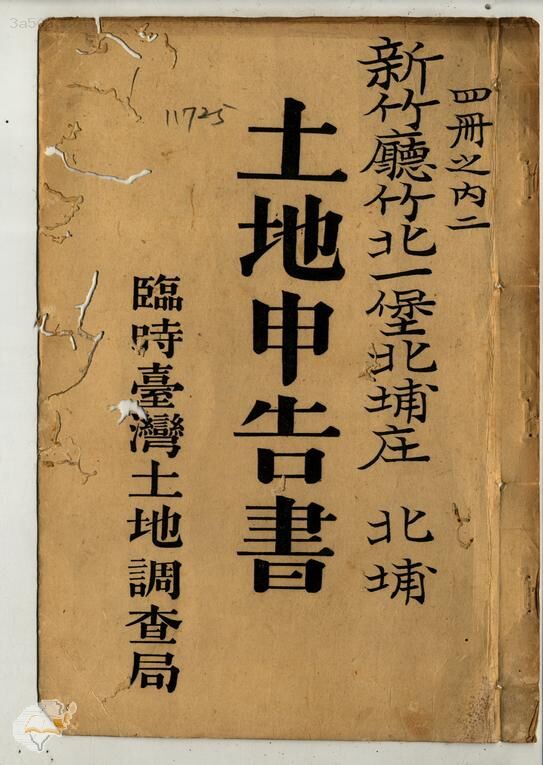 四冊之内二
新竹廳竹北一堡北埔庄 北埔
土地申告書
11725
臨時臺灣土地調查局